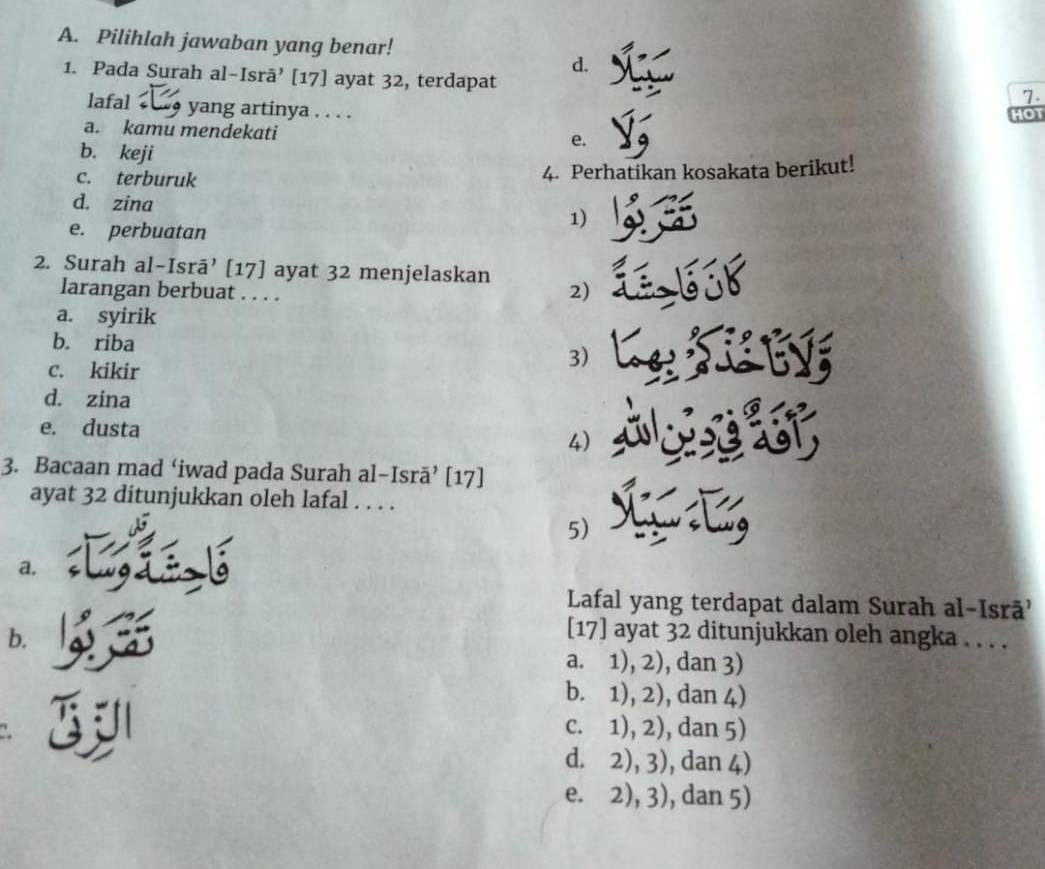 A. Pilihlah jawaban yang benar!
1. Pada Surah al-Isrā’ [17] ayat 32, terdapat
lafal وَسَاۤءَ yang artinya . . . .
a. kamu mendekati
b. keji
c. terburuk
d. zina
e. perbuatan
2. Surah al-Isrā’ [17] ayat 32 menjelaskan
larangan berbuat . . . .
a. syirik
b. riba
c. kikir
d. zina
e. dusta
3. Bacaan mad ‘iwad pada Surah al-Isrā’ [17]
ayat 32 ditunjukkan oleh lafal . . . .
a. فَاحِشَةً ۗوَسَاۤءَ
b. تَقْرَبُوا
c. الزِّنٰٓى
d. سَبِيْلًا
e. وَلَا
4. Perhatikan kosakata berikut!
1) تَقْرَبُوا
2) كَانَ فَاحِشَةً
3) وَّلَا تَأْخُذْكُمْ بِهِمَا
4) رَأْفَةٌ فِيْ دِيْنِ اللّٰهِ
5) وَسَاۤءَ سَبِيْلًا
Lafal yang terdapat dalam Surah al-Isrā’
[17] ayat 32 ditunjukkan oleh angka . . . .
a. 1), 2), dan 3)
b. 1), 2), dan 4)
c. 1), 2), dan 5)
d. 2), 3), dan 4)
e. 2), 3), dan 5)
7.
HOT